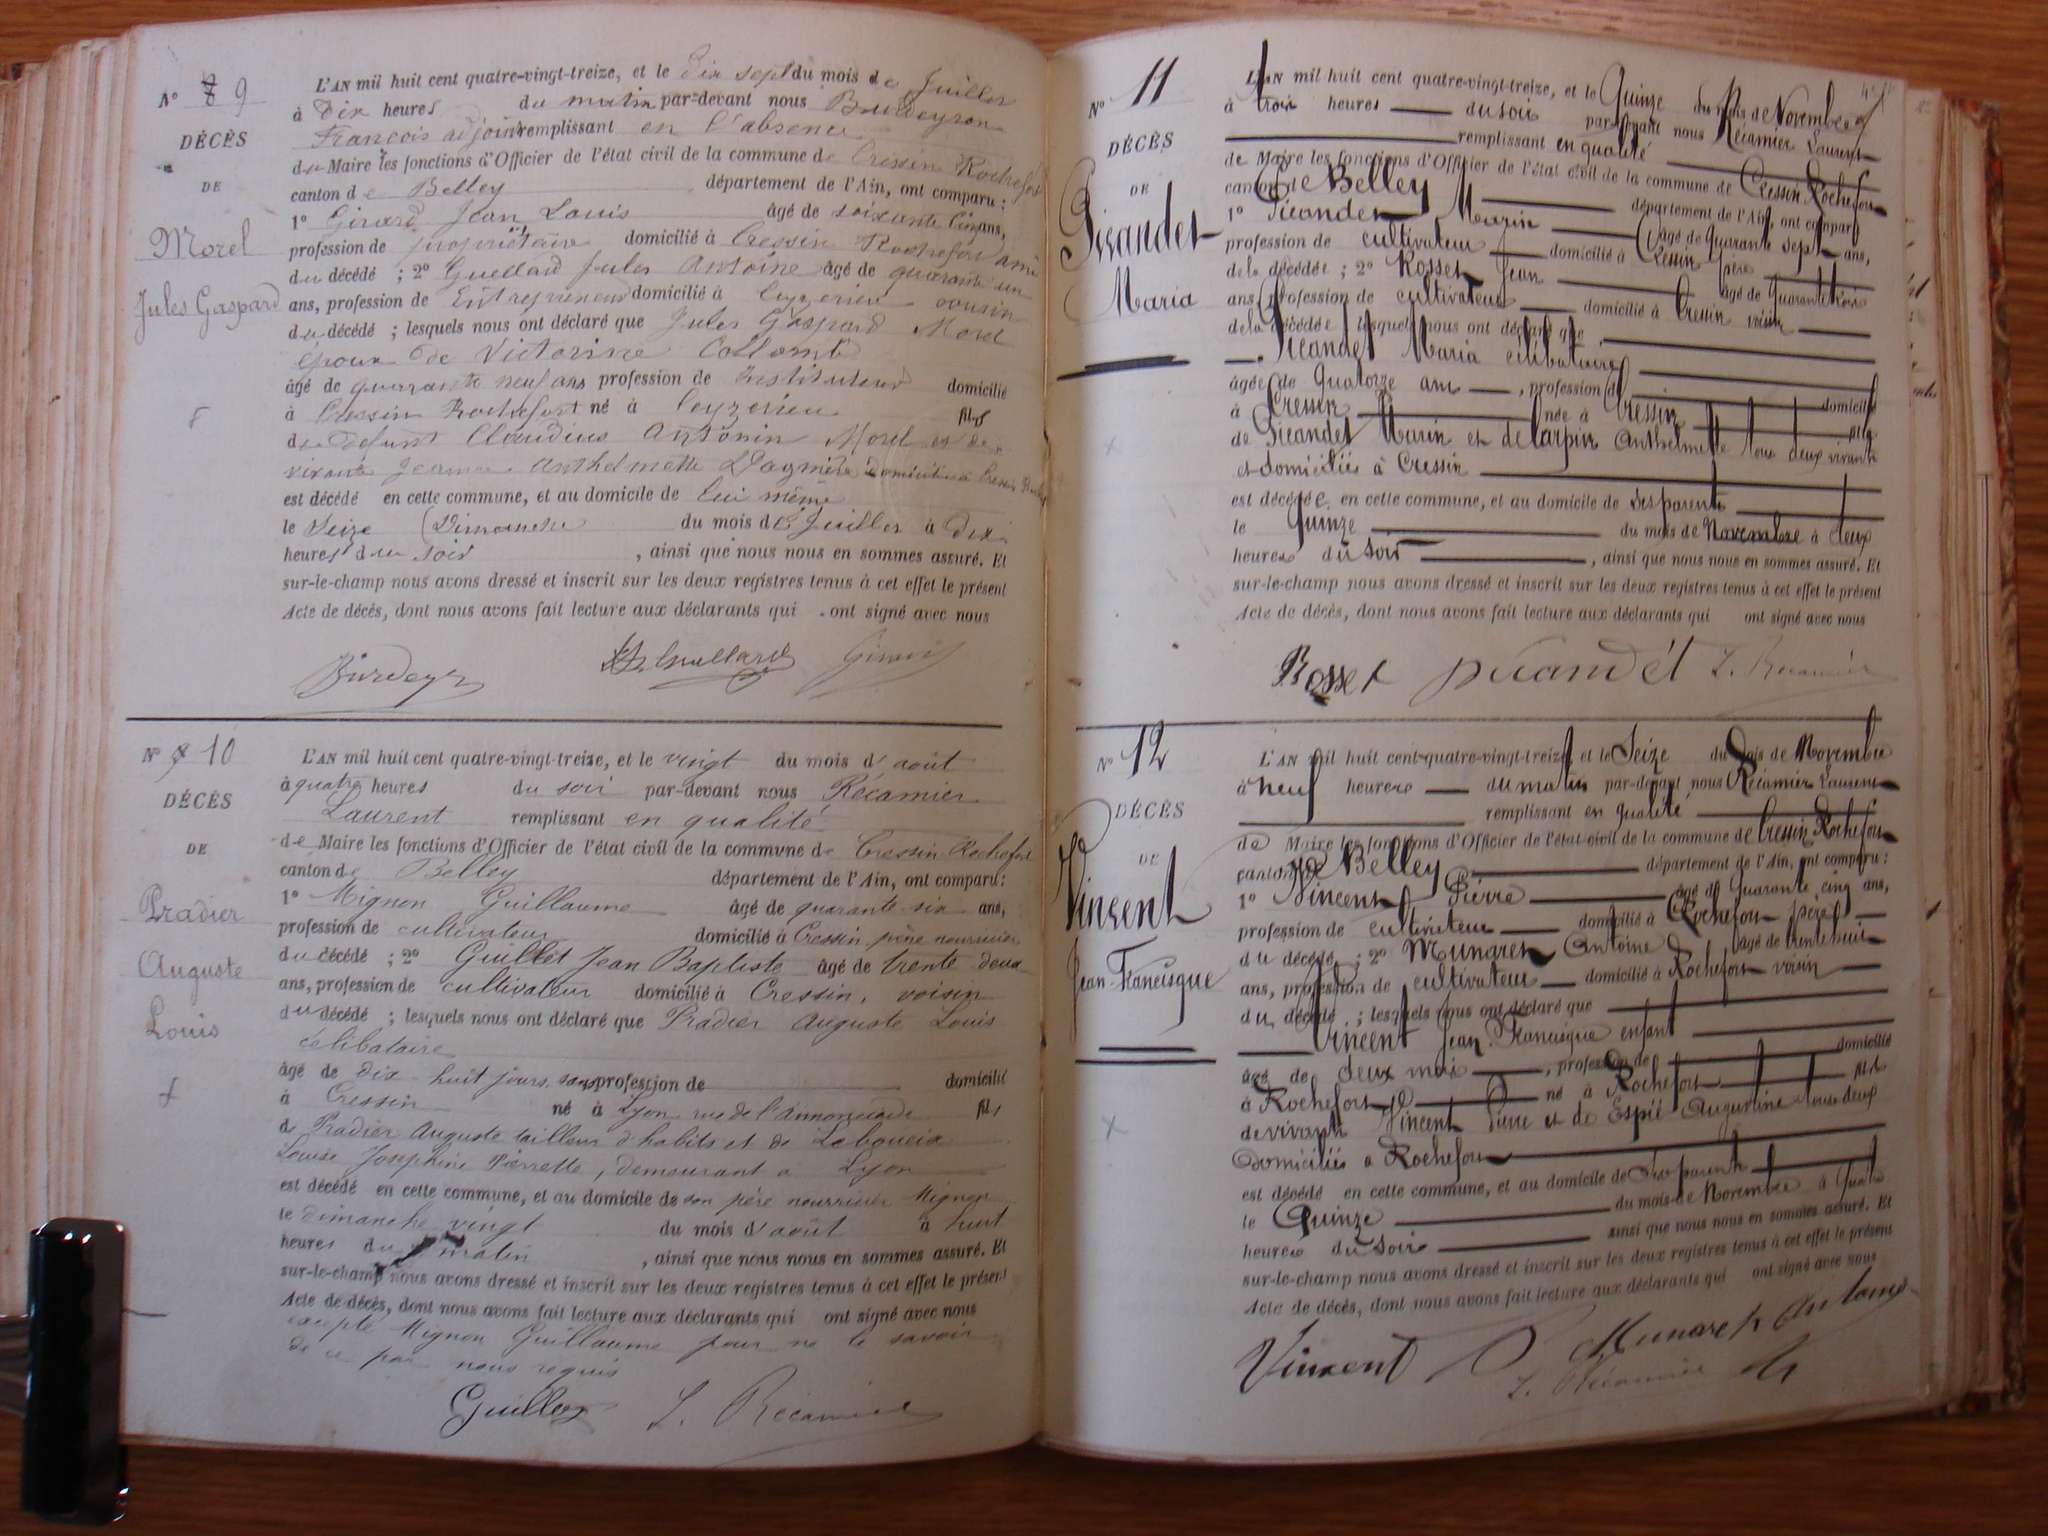 N° 9
DÉCÈS
DE
Morel
Jules Gaspard
L'AN mil huit cent quatre-vingt-treize, et le dix sept du mois de Juillet
à dix heures du matin par-devant nous Burdeyron
François adjoint remplissant en l'absence
du Maire les fonctions d'Officier de l'état civil de la commune de Cressin Rochefort
canton de Belley département de l'Ain, ont comparu :
1° Girard Jean Louis âgé de soixante cinq ans,
profession de propriétaire domicilié à Cressin Rochefort ami
du décédé ; 2° Guellard Jules Antoine âgé de quarante un
ans, profession de Entrepreneur domicilié à Ceyzerieu cousin
du décédé ; lesquels nous ont déclaré que Jules Gaspard Morel
époux de Victorine Collomb
âgé de quarante neuf ans profession de Instituteur domicilié
à Cressin Rochefort né à Ceyzerieu fils
de défunt Claudius Antonin Morel et de
vivante Jeanne Anthelmette domiciliée à Cressin
est décédé en cette commune, et au domicile de lui même
le Seize (Dimanche du mois de Juillet à dix
heures du soir , ainsi que nous nous en sommes assuré. Et
sur-le-champ nous avons dressé et inscrit sur les deux registres tenus à cet effet le présent
Acte de décès, dont nous avons fait lecture aux déclarants qui ont signé avec nous
N° 10
DÉCÈS
DE
Pradier
Auguste
Louis
L'AN mil huit cent quatre-vingt-treize, et le vingt du mois d'août
à quatre heures du soir par-devant nous Récamier
Laurent remplissant en qualité
de Maire les fonctions d'Officier de l'état civil de la commune de Cressin Rochefort
canton de Belley département de l'Ain, ont comparu :
1° Mignon Guillaume âgé de quarante six ans,
profession de cultivateur domicilié à Cressin père nourricier
du décédé ; 2° Guillet Jean Baptiste âgé de trente deux
ans, profession de cultivateur domicilié à Cressin, voisin
du décédé ; lesquels nous ont déclaré que Pradier Auguste Louis
célibataire
âgé de dix huit jours, sans profession de domicilié
à Cressin né à Lyon rue de l'Annonciade fils
de Pradier Auguste tailleur d'habits et de
Louise Joséphine Pierrette, demeurant à Lyon
est décédé en cette commune, et au domicile de son père nourricier Mignon
le dimanche vingt du mois d'août à huit
heures du matin , ainsi que nous nous en sommes assuré. Et
sur-le-champ nous avons dressé et inscrit sur les deux registres tenus à cet effet le présent
Acte de décès, dont nous avons fait lecture aux déclarants qui ont signé avec nous
excepté Mignon Guillaume pour ne le savoir
de ce par nous requis
Guillet L. Récamier
N° 11
DÉCÈS
DE
Picandet
Maria
L'AN mil huit cent quatre-vingt-treize, et le Quinze du mois de Novembre
à trois heures du soir par-devant nous Récamier Laurent
remplissant en qualité
de Maire les fonctions d'Officier de l'état civil de la commune de Cressin Rochefort
canton de Belley département de l'Ain, ont comparu
1° Picandet Marin âgé de Quarante sept ans,
profession de cultivateur domicilié à Cressin père
de la décédée ; 2° Rosset Jean âgé de Quarante trois
ans, profession de cultivateur domicilié à Cressin voisin
de la décédée lesquels nous ont déclaré que
Picandet Maria célibataire
âgée de Quatorze ans , profession de domicilié
à Cressin née à Cressin fille
de Picandet Marin et de Carpin Anthelmette tous deux vivants
et domiciliés à Cressin
est décédée en cette commune, et au domicile de ses parents
le Quinze du mois de Novembre à deux
heures du soir , ainsi que nous nous en sommes assuré. Et
sur-le-champ nous avons dressé et inscrit sur les deux registres tenus à cet effet le présent
Acte de décès, dont nous avons fait lecture aux déclarants qui ont signé avec nous
Rosset picandet L. Récamier
N° 12
DÉCÈS
DE
Vincent
Jean Francisque
L'AN mil huit cent quatre-vingt-treize et le Seize du mois de Novembre
à neuf heures du matin par-devant nous Récamier Laurent
remplissant en qualité
de Maire les fonctions d'Officier de l'état civil de la commune de Cressin Rochefort
canton de Belley département de l'Ain, ont comparu :
1° Vincent Pierre âgé de Quarante cinq ans,
profession de cultivateur domicilié à Rochefort père
du décédé ; 2° Munaret Antoine âgé de trente huit
ans, profession de cultivateur domicilié à Rochefort voisin
du décédé ; lesquels nous ont déclaré que
Vincent Jean Francisque enfant
âgé de deux mois , profession de domicilié
à Rochefort né à Rochefort fils
de vivants Vincent Pierre et de Espié Augustine tous deux
domiciliés à Rochefort
est décédé en cette commune, et au domicile de ses parents
le Quinze du mois de Novembre à Quatre
heures du soir ainsi que nous nous en sommes assuré. Et
sur-le-champ nous avons dressé et inscrit sur les deux registres tenus à cet effet le présent
Acte de décès, dont nous avons fait lecture aux déclarants qui ont signé avec nous
Vincent P Munaret Antoine
L. Récamier